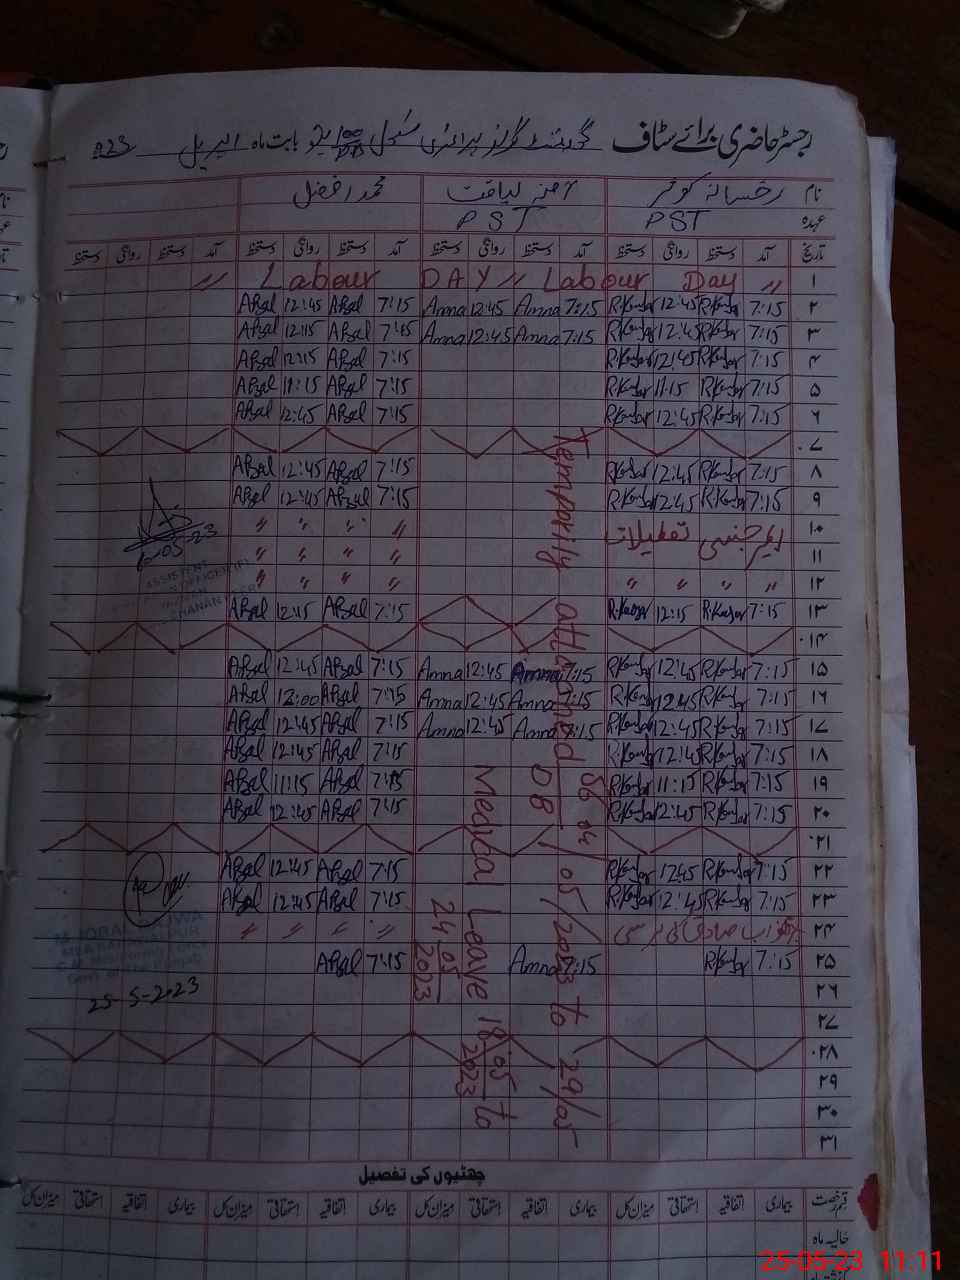 رجسٹر حاضری برائے سٹاف گورنمنٹ گرلز پرائمری سکول بابت ماہ اپریل
نام رخسانہ کوثر آمنہ لیاقت محمد افضل
عہدہ PST PST
تاریخ آمد دستخط روانگی دستخط آمد دستخط روانگی دستخط آمد دستخط روانگی دستخط آمد دستخط روانگی دستخط
۱ " Labour Day " Labour DAY "
۲ 7:15 R.Kausar 12:45 R.Kausar 7:15 Amna 12:45 Amna 7:15 Afzal 12:45 Afzal
۳ 7:15 R.Kausar 12:45 R.Kausar 7:15 Amna 12:45 Amna 7:15 Afzal 12:45 Afzal
۴ 7:15 R.Kausar 12:45 R.Kausar 7:15 Afzal 12:45 Afzal
۵ 7:15 R.Kausar 11:15 R.Kausar 7:15 Afzal 11:15 Afzal
۶ 7:15 R.Kausar 12:45 R.Kausar 7:15 Afzal 12:45 Afzal
۷
۸ 7:15 R.Kausar 12:45 R.Kausar 7:15 Afzal 12:45 Afzal
۹ 7:15 R.Kausar 12:45 R.Kausar 7:15 Afzal 12:45 Afzal
۱۰ ایمرجنسی تعطیلات " " " "
۱۱ " " " "
۱۲ " " " " " " " "
۱۳ 7:15 R.Kausar 12:15 R.Kausar 7:15 Afzal 12:45 Afzal
۱۴
۱۵ 7:15 R.Kausar 12:45 R.Kausar 7:15 Amna 12:45 Amna 7:15 Afzal 12:45 Afzal
۱۶ 7:15 R.Kausar 12:45 R.Kausar 7:15 Amna 12:45 Amna 7:15 Afzal 12:00 Afzal
۱۷ 7:15 R.Kausar 12:45 R.Kausar 7:15 Amna 12:45 Amna 7:15 Afzal 12:45 Afzal
۱۸ 7:15 R.Kausar 12:45 R.Kausar 7:15 Afzal 12:45 Afzal
۱۹ 7:15 R.Kausar 11:15 R.Kausar 7:15 Afzal 11:15 Afzal
۲۰ 7:15 R.Kausar 12:45 R.Kausar 7:15 Afzal 12:45 Afzal
۲۱
۲۲ 7:15 R.Kausar 12:45 R.Kausar 7:15 Afzal 12:45 Afzal
۲۳ 7:15 R.Kausar 12:45 R.Kausar 7:15 Afzal 12:45 Afzal
۲۴ " " " "
۲۵ 7:15 R.Kausar 7:15 Amna 7:15 Afzal
۲۶
۲۷
۲۸
۲۹
۳۰
۳۱
Temporily attached 04/05/2023 to 29/05
Medical Leave 18/05/2023 to 24/05/2023
10-05-23
ASSISTENT
25-5-2023
چھٹیوں کی تفصیل
قسم رخصت بیماری اتفاقیہ استحقاقی میزان کل بیماری اتفاقیہ استحقاقی میزان کل بیماری اتفاقیہ استحقاقی میزان کل بیماری اتفاقیہ استحقاقی میزان کل
حالیہ ماہ
25-05-23 11:11